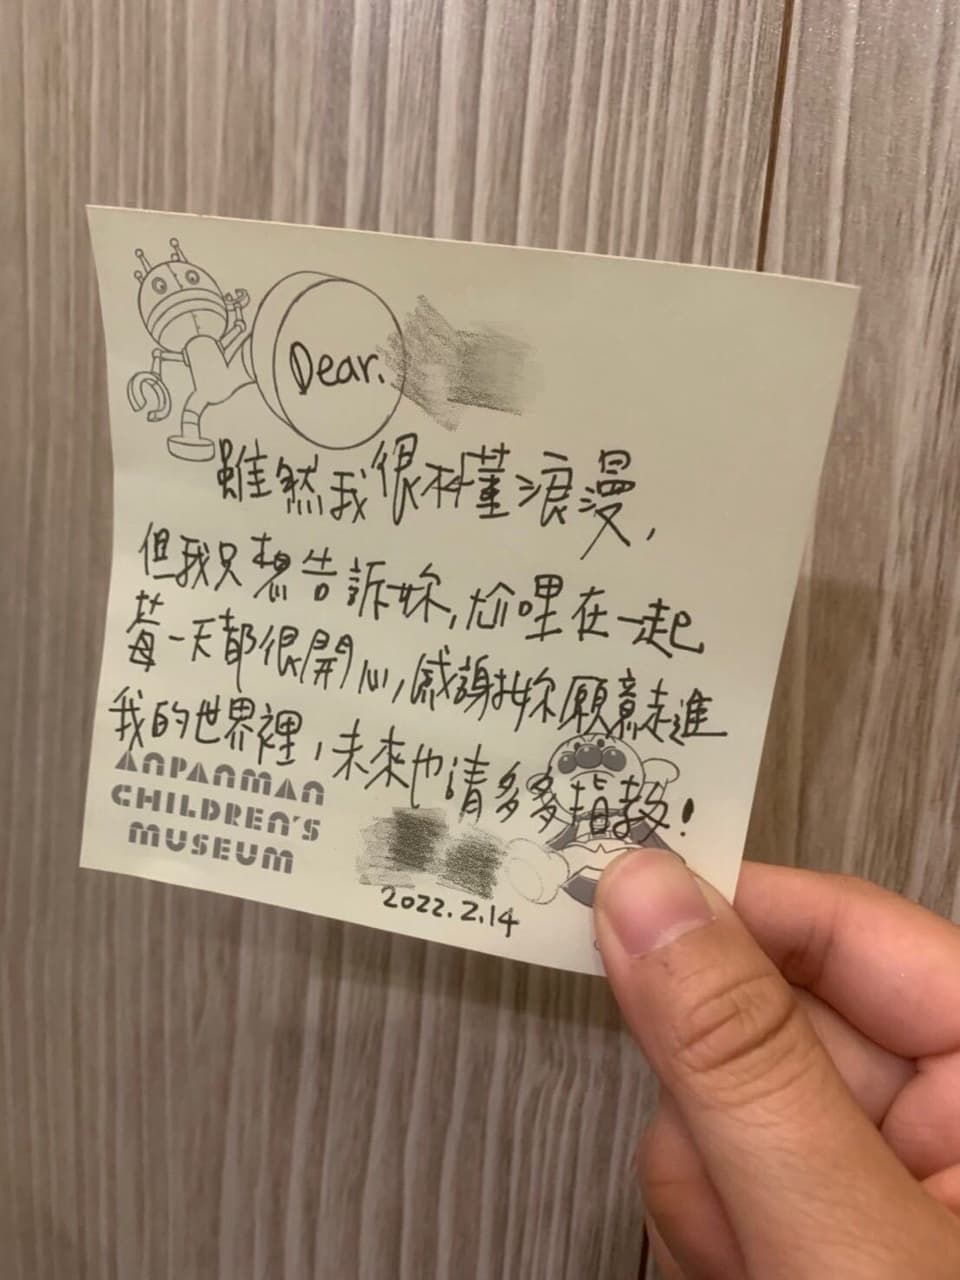 Dear.
雖然我很不懂浪漫,
但我只想告訴妳,尬哩在一起
莓一天都很開心,感謝妳願意走進
我的世界裡,未來也請多多指教!
ANPANMAN
CHILDREN'S
MUSEUM
2022.2.14